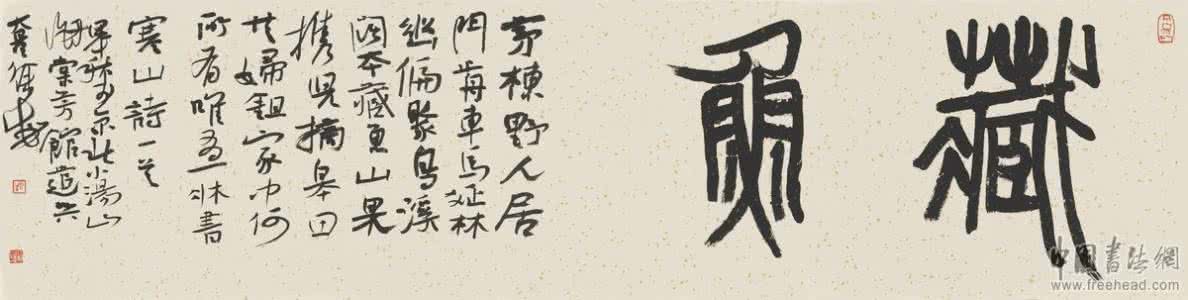 藏魚
茅棟野人居
門前車馬疏林
幽偏聚鳥溪
闊本藏魚山果
攜兒摘皋田
共婦鋤家中何
所有唯牀書
寒山詩一首
京北小湯山
棠芳館
中国書法網
www.freehead.com